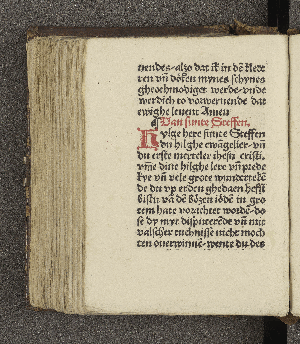 nendes· alzo dat ik in dē klere
ren vñ dökeñ mynes schynes
ghedēmodiger werde· vnde
werdich to vorwernende dat
ewighe leuent Amen
¶ Van sunte Steffen.
Hylge here sunte Steffen
du hilghe ewāgelier· vñ
du erste merteler ihesu cristi.
vmme dine hilghe lere vñ prede
kye vñ vele grote wundertekē
de du vp erden ghedaen hefst
bistu vā dē bözen iödē in gro
tem hate vorichtet wordē· do
se dy myt disputerēde vñ mit
valscher tuchnisse nicht moch
ten ouerwinnē· wente du des